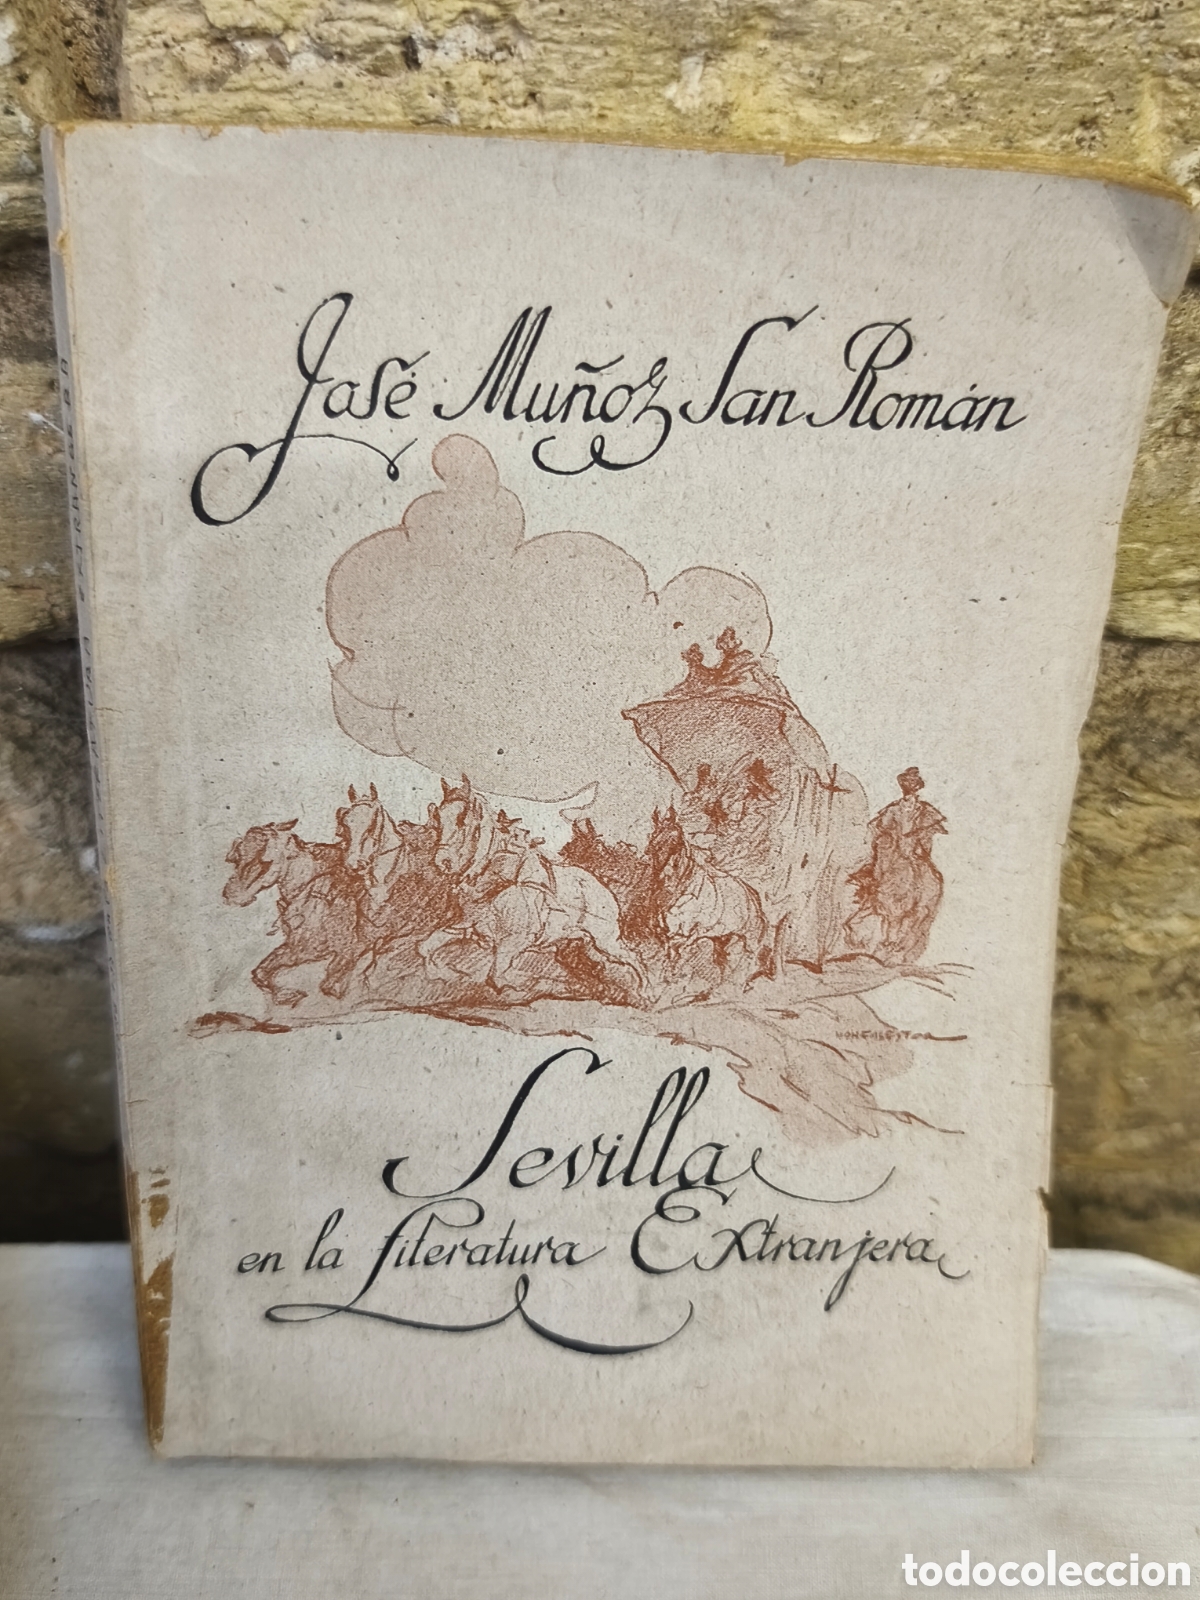 José Muñoz San Román
Sevilla
en la Literatura Extranjera
todocoleccion